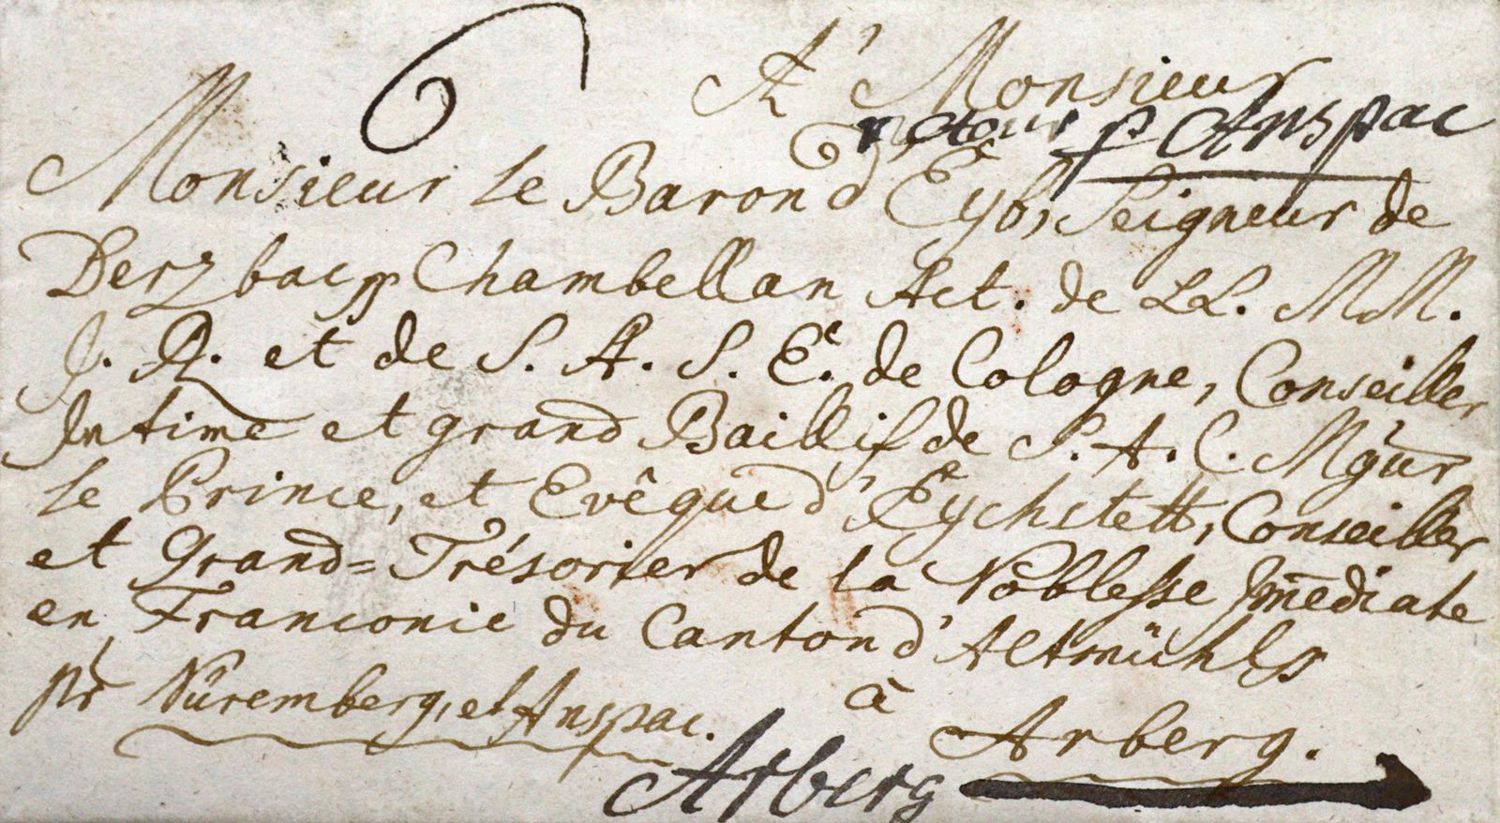 6
A' Monsieur
retour p Anspac
Monsieur le Baron d'Eyb, Seigneur de
Derzbach Chambellan Act. de LL. MM.
J. R. et de S. A. S. E. de Cologne, Conseiller
Intime et grand Baillif de S. A. C. Mgur
le Prince, et Evêque d'Eychstett, Conseiller
et Grand=Trésorier de la Noblesse Jm̄ediate
en Franconie du Canton d'Altmühls
à
pr Nüremberg, et Anspac. Arberg.
Arberg